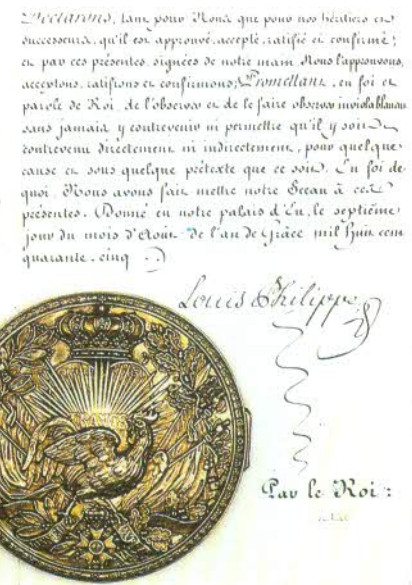 Déclarons, tant pour Nous que pour nos héritiers et
successeurs, qu'il est approuvé, accepté, ratifié et confirmé;
et par ces présentes, signées de notre main, Nous l'approuvons,
acceptons, ratifions et confirmons; Promettant, en foi et
parole de Roi, de l'observer et de le faire observer inviolablement
sans jamais y contrevenir ni permettre qu'il y soit
contrevenu directement ni indirectement, pour quelque
cause et sous quelque prétexte que ce soit. En foi de
quoi, Nous avons fait mettre notre Sceau à ces
présentes. Donné en notre palais d'Eu, le septième
jour du mois d'Août de l'an de Grâce mil huit cent
quarante-cinq
Louis Philippe
Par le Roi :